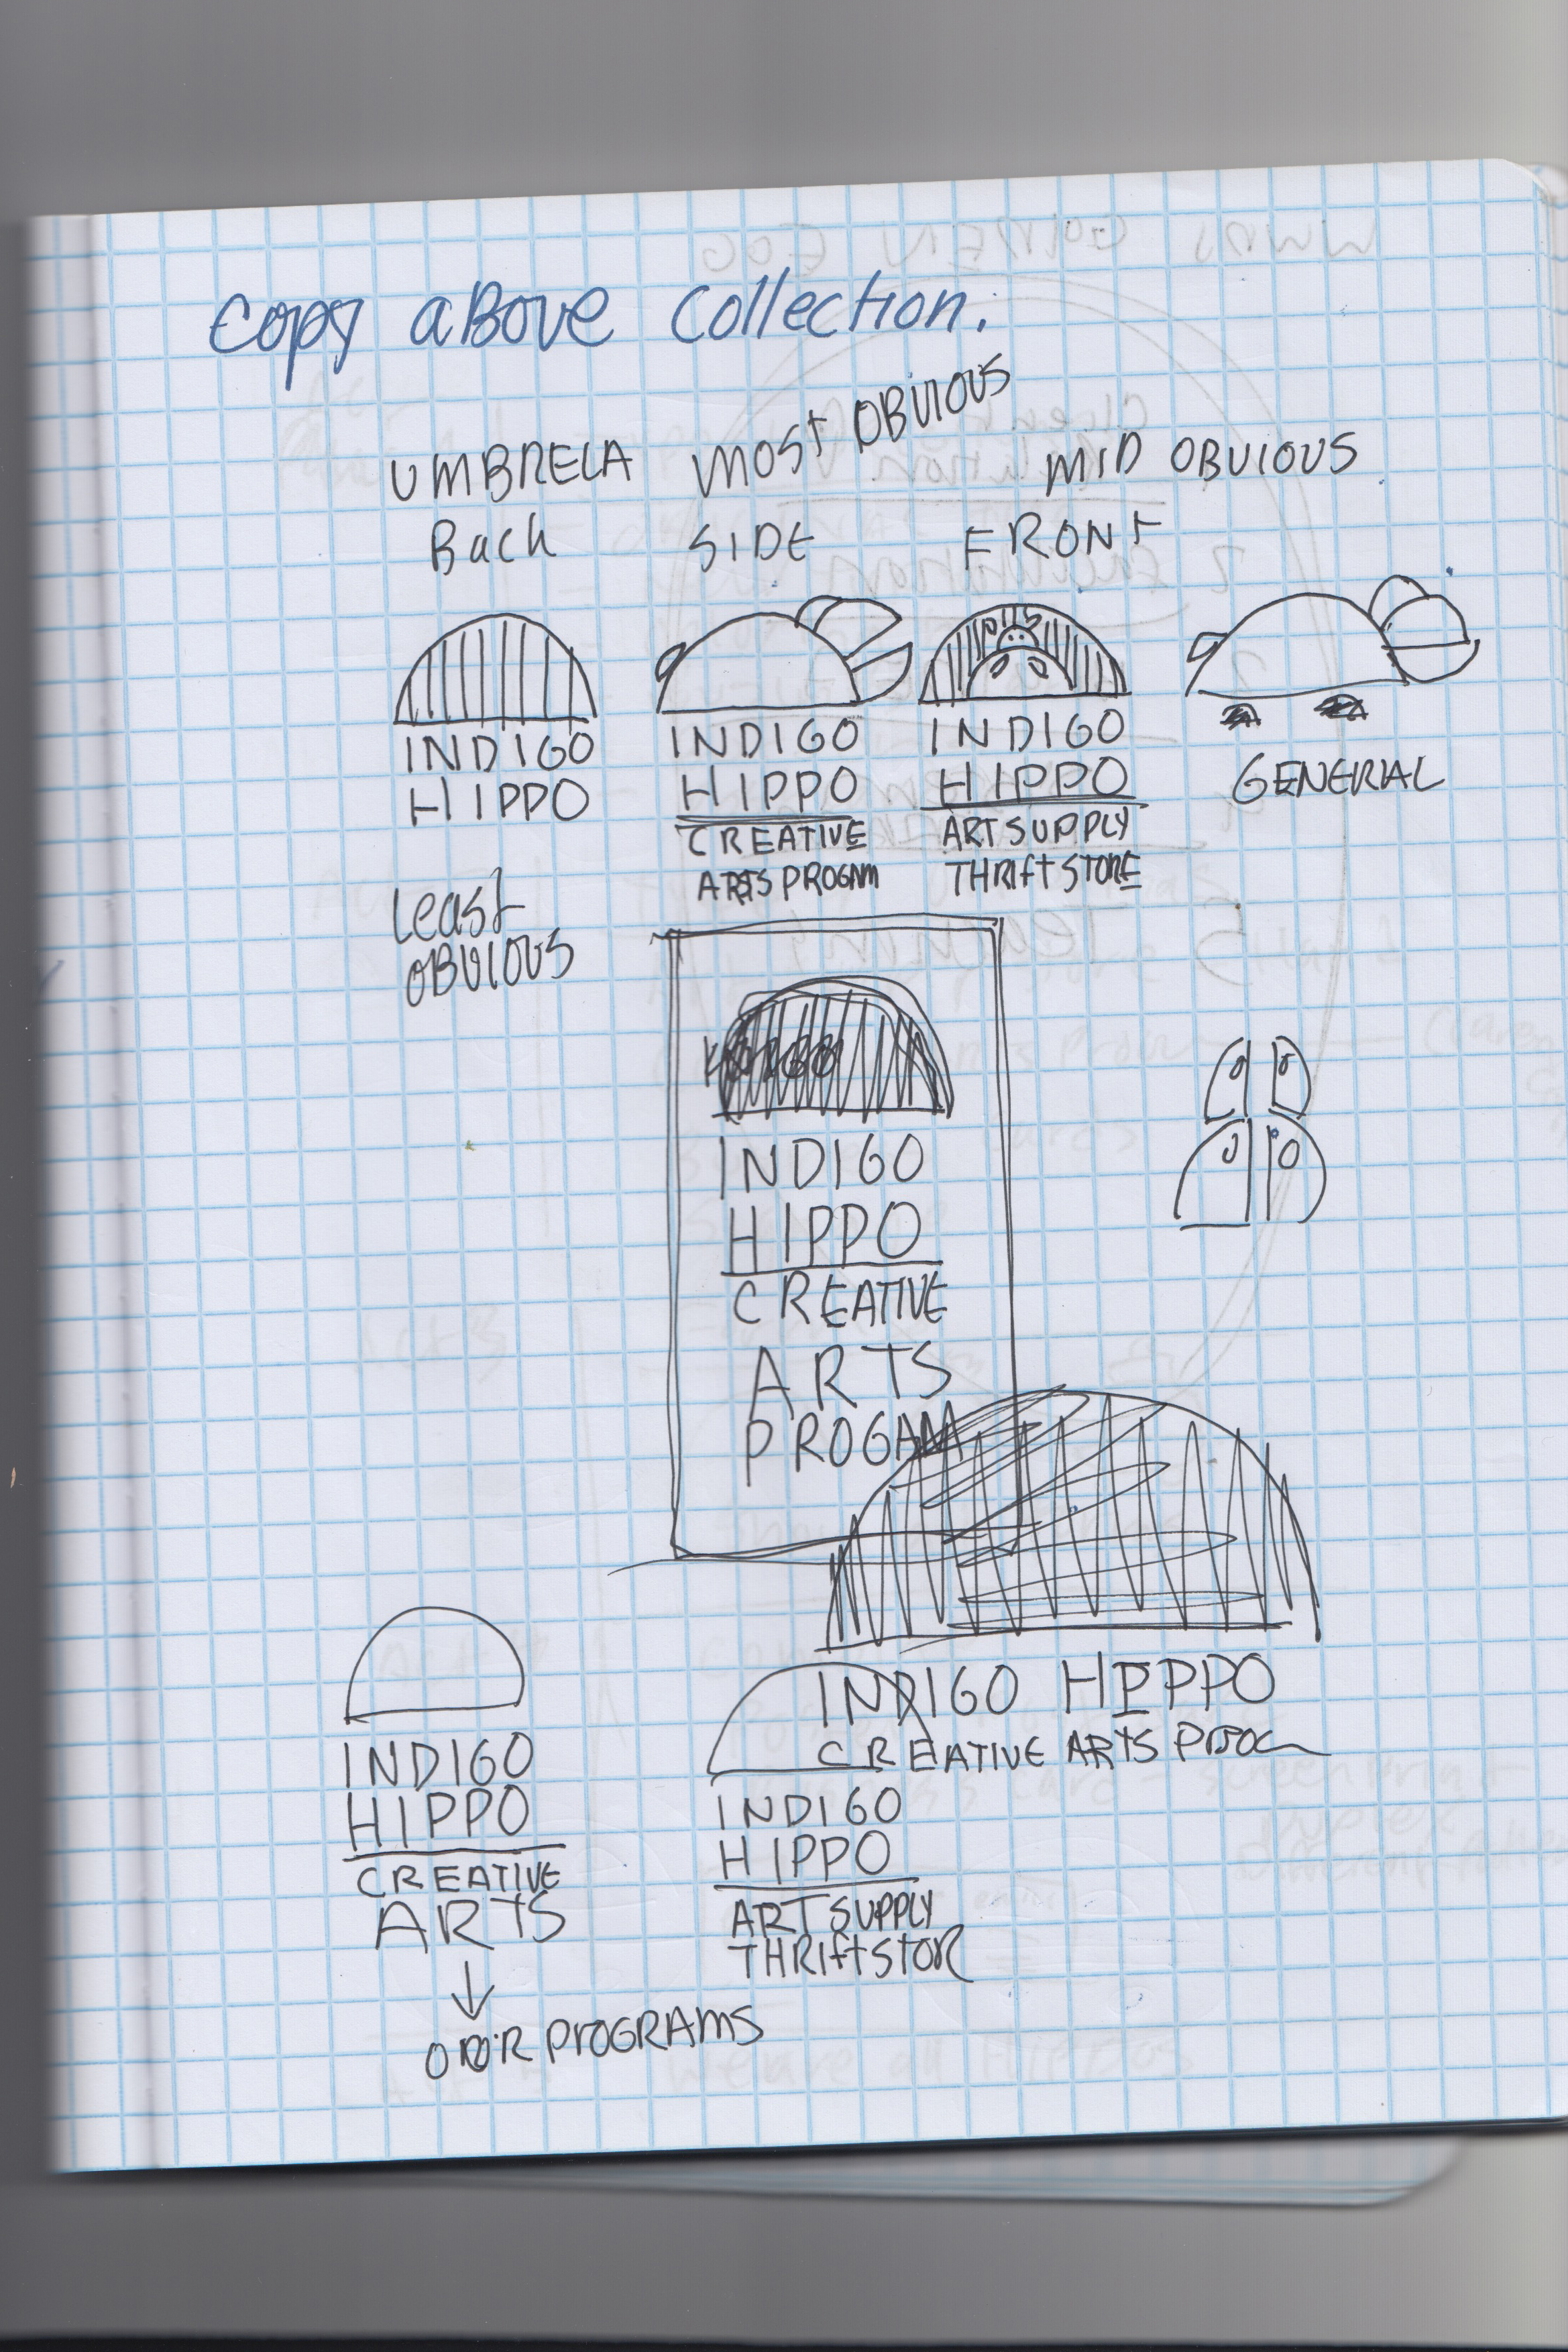 copy aBove collection.
UMBRELA MOST OBVIOUS MID OBVIOUS
Back SIDE FRONT
INDIGO
HIPPO
LEAST
OBVIOUS
INDIGO
HIPPO
CREATIVE
ARTS PROGAM
INDIGO
HIPPO
ART SUPPLY
THRIFT STORE
GENERIAL
INDIGO
HIPPO
CREATIVE
ARTS
PROGAM
INDIGO HIPPO
CREATIVE ARTS PROG
INDIGO
HIPPO
CREATIVE
ARTS
PROGRAMS
INDIGO
HIPPO
ART SUPPLY
THRIFT STOR